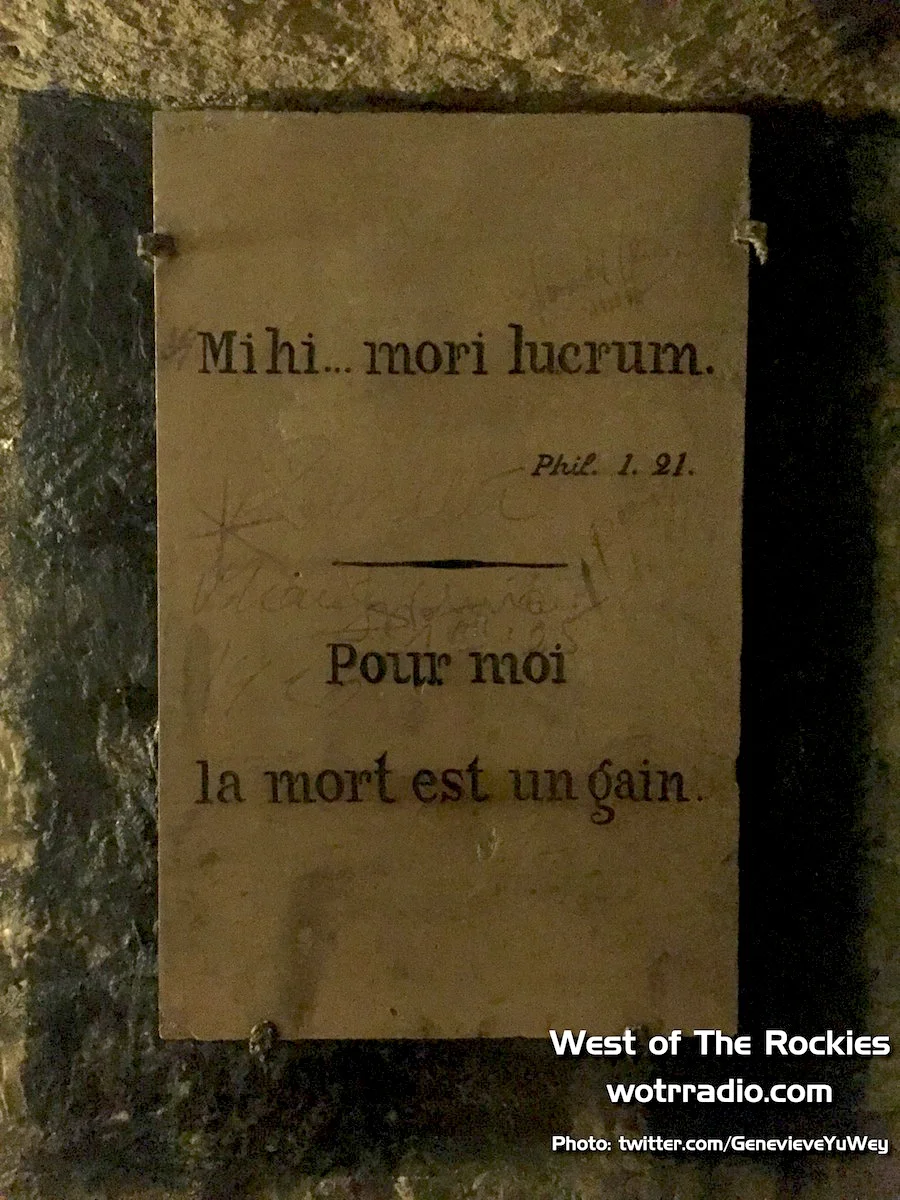 Mihi... mori lucrum.
Phil. 1. 21.
Pour moi
la mort est un gain.
West of The Rockies
wotrradio.com
Photo: twitter.com/GenevieveYuWey